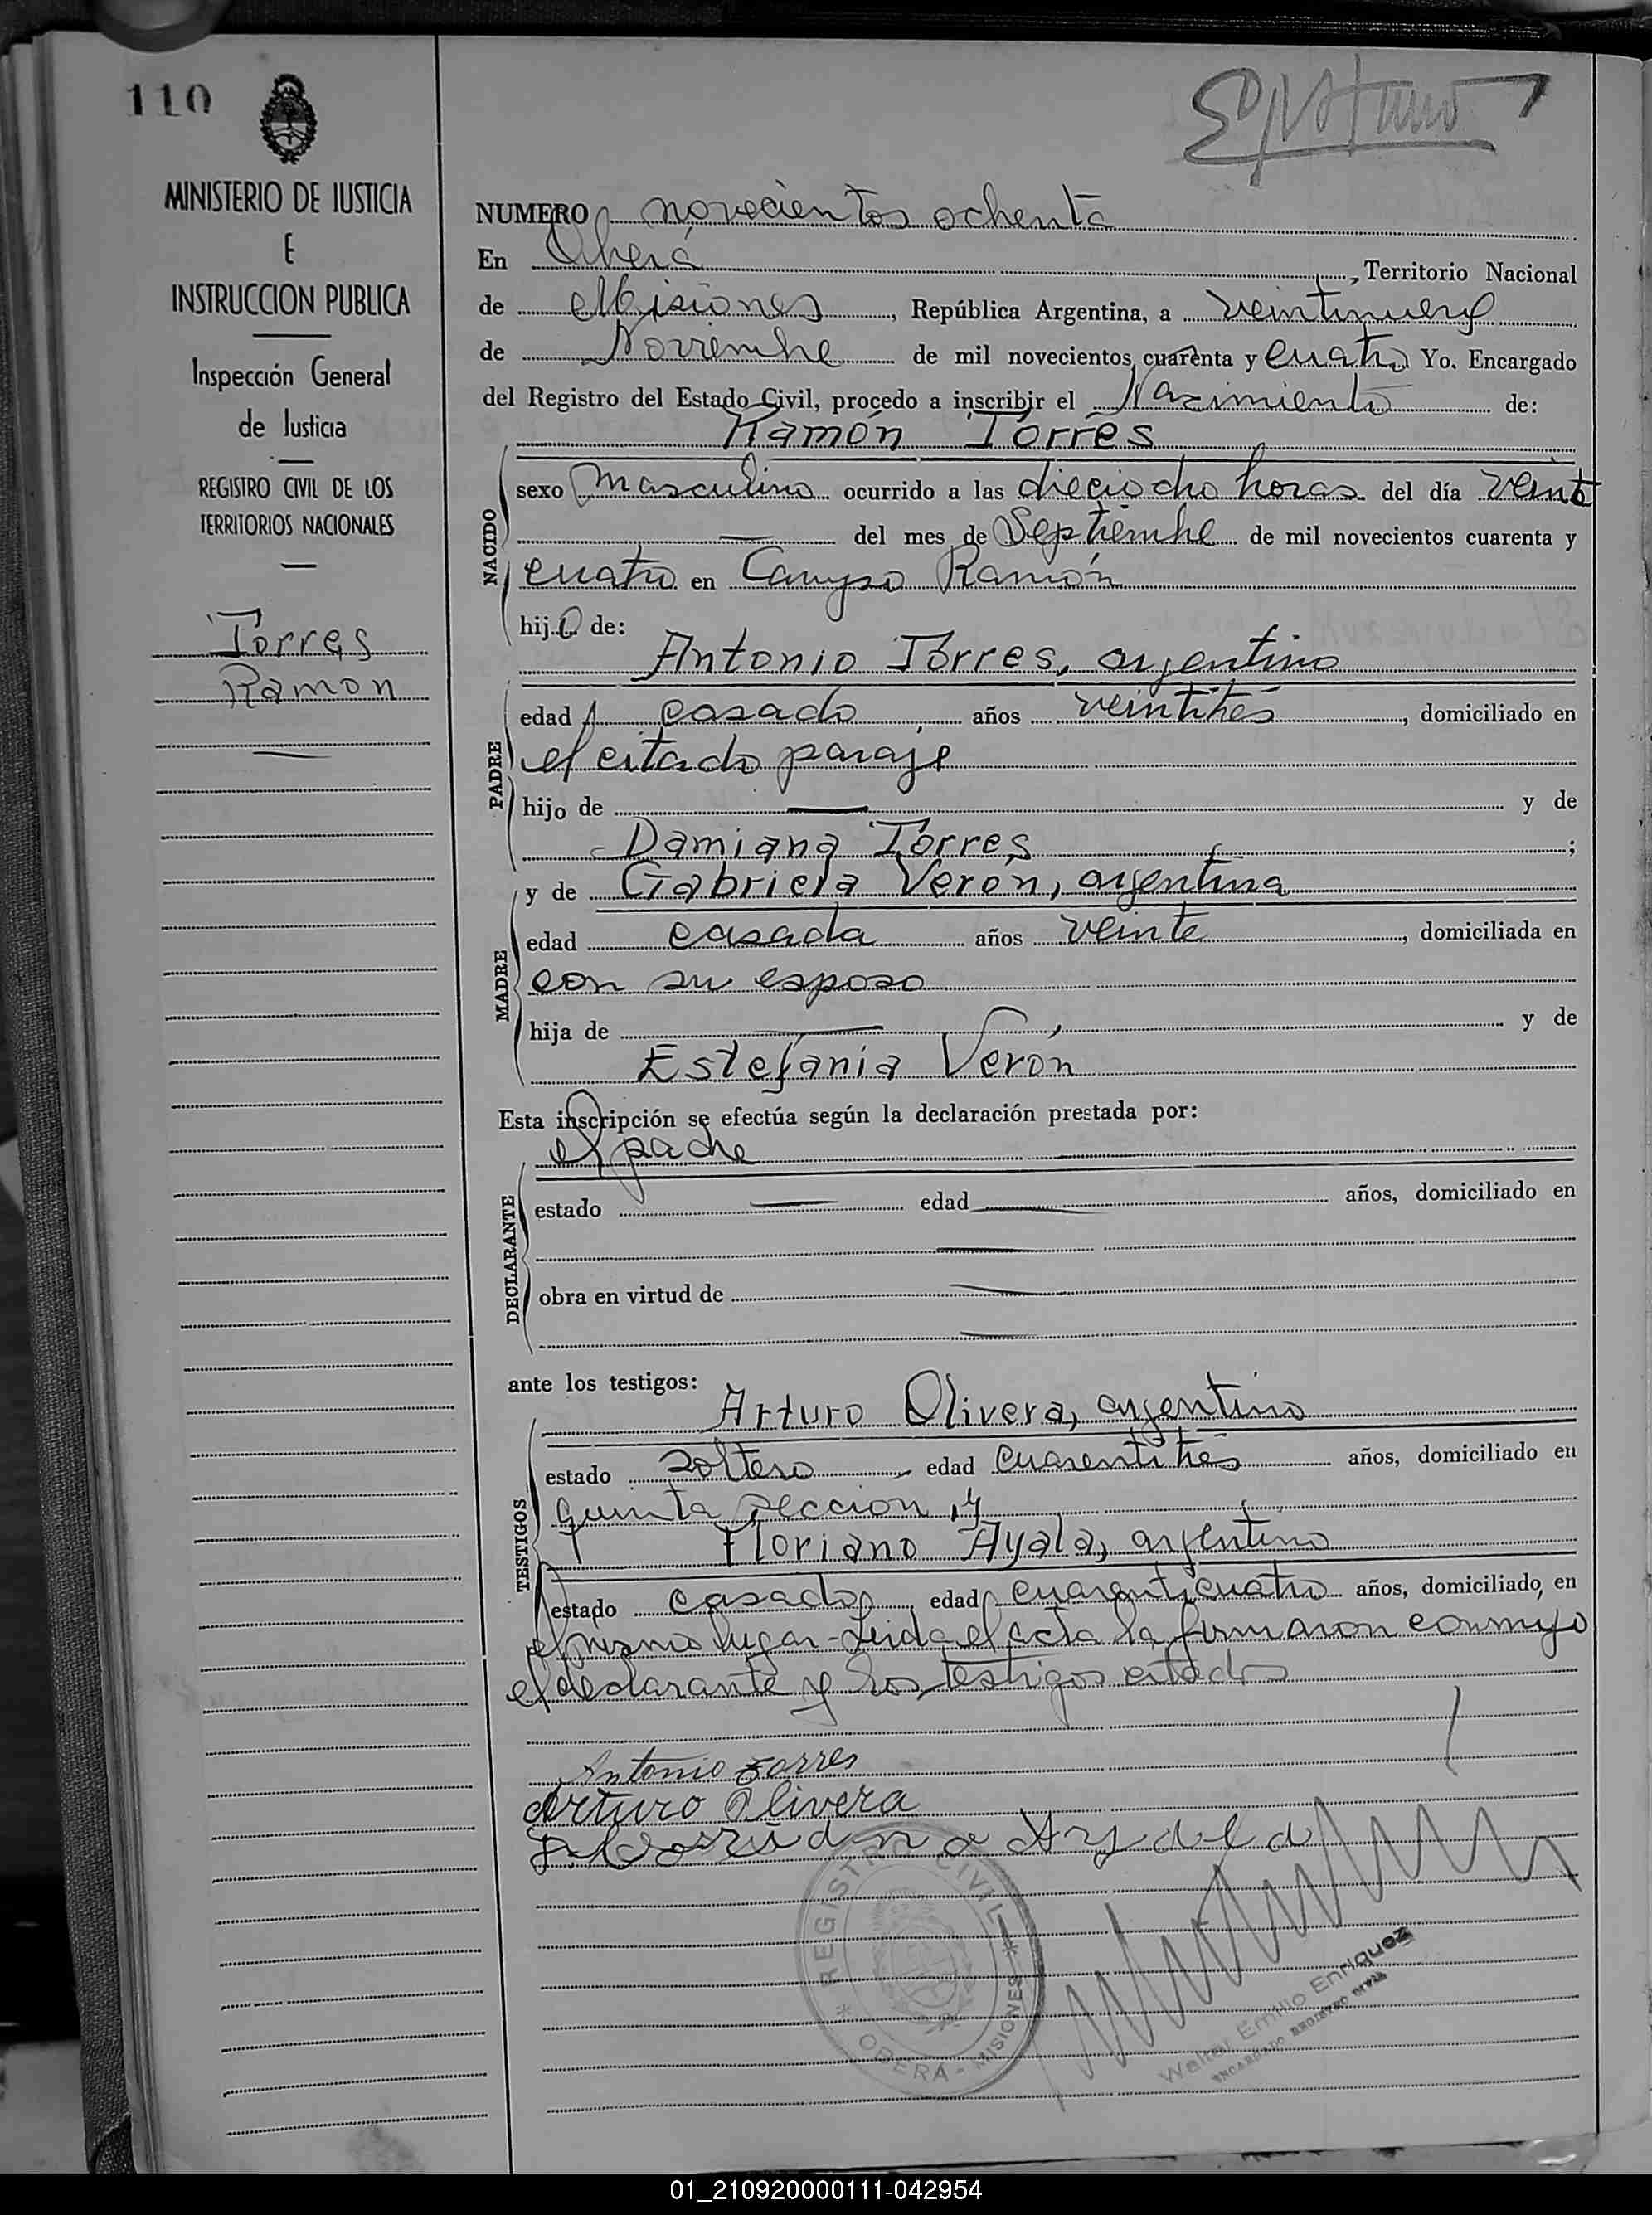 110
MINISTERIO DE JUSTICIA
E
INSTRUCCION PUBLICA
Inspección General
de Justicia
REGISTRO CIVIL DE LOS
TERRITORIOS NACIONALES
Torres
Ramon
NUMERO novecientos ochenta
En Oberá, Territorio Nacional
de Misiones, República Argentina, a veintinueve
de Noviembre de mil novecientos cuarenta y cuatro Yo. Encargado
del Registro del Estado Civil, procedo a inscribir el Nacimiento de:
Ramón Torres
NACIDO
sexo masculino ocurrido a las dieciocho horas del día veinte
del mes de Septiembre de mil novecientos cuarenta y
cuatro en Ramón
hijo de:
Antonio Torres, argentino
PADRE
edad casado años veintitrés, domiciliado en
el citado paraje
hijo de y de
Damiana Torres;
MADRE
y de Gabriela Verón, argentina
edad casada años veinte, domiciliada en
con su esposo
hija de y de
Estefania Verón
Esta inscripción se efectúa según la declaración prestada por:
el padre
DECLARANTE
estado edad años, domiciliado en
obra en virtud de
ante los testigos:
Arturo Olivera, argentino
TESTIGOS
estado soltero edad cuarentitrés años, domiciliado en
quinta seccion y
Floriano Ayala, argentino
estado casado, edad cuarenticuatro años, domiciliado, en
el mismo lugar - Leida el acta la firmaron conmigo
el declarante y los testigos citados
Antonio Torres
Arturo Olivera
Floriano Ayala
REGISTRO CIVIL
OBERA - MISIONES
Walter Emilio Enriquez
ENCARGADO REGISTRO CIVIL
01_210920000111-042954